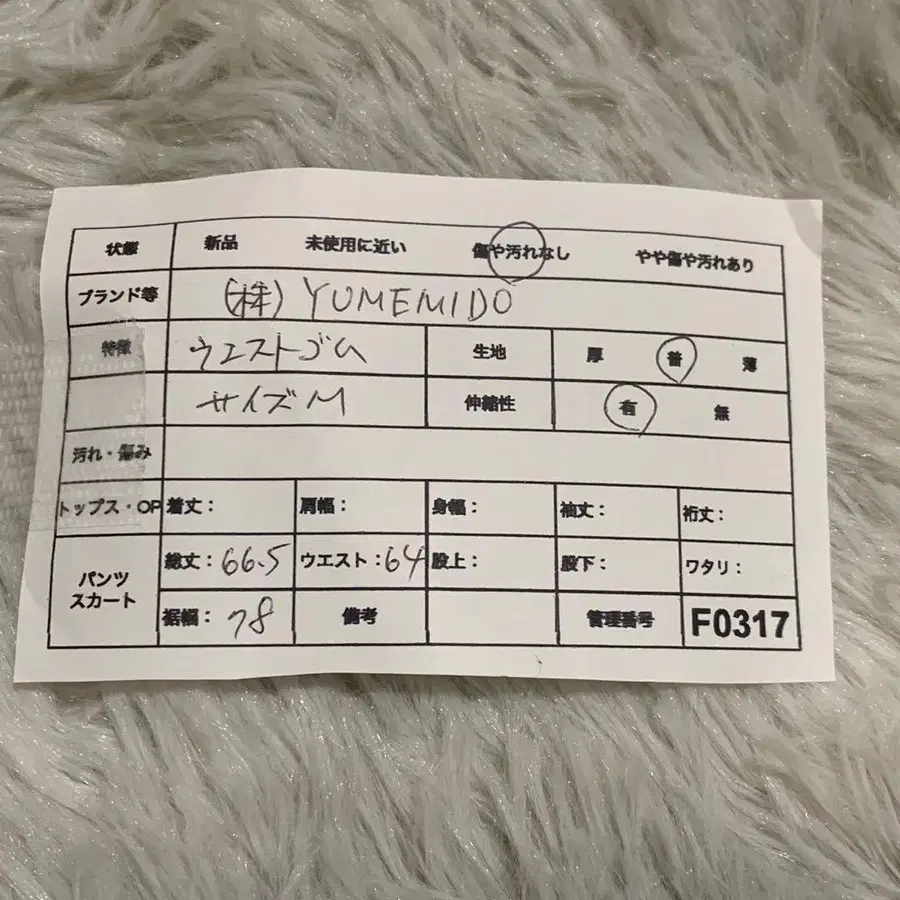 状態 新品 未使用に近い 傷や汚れなし やや傷や汚れあり
ブランド等 (株)YUMEMIDO
特徴 ウエストゴム 生地 厚 普 薄
サイズM 伸縮性 有 無
汚れ・傷み
トップス・OP 着丈： 肩幅： 身幅： 袖丈： 裄丈：
パンツ
スカート
総丈：66.5 ウエスト：64 股上： 股下： ワタリ：
裾幅：78 備考 管理番号 F0317